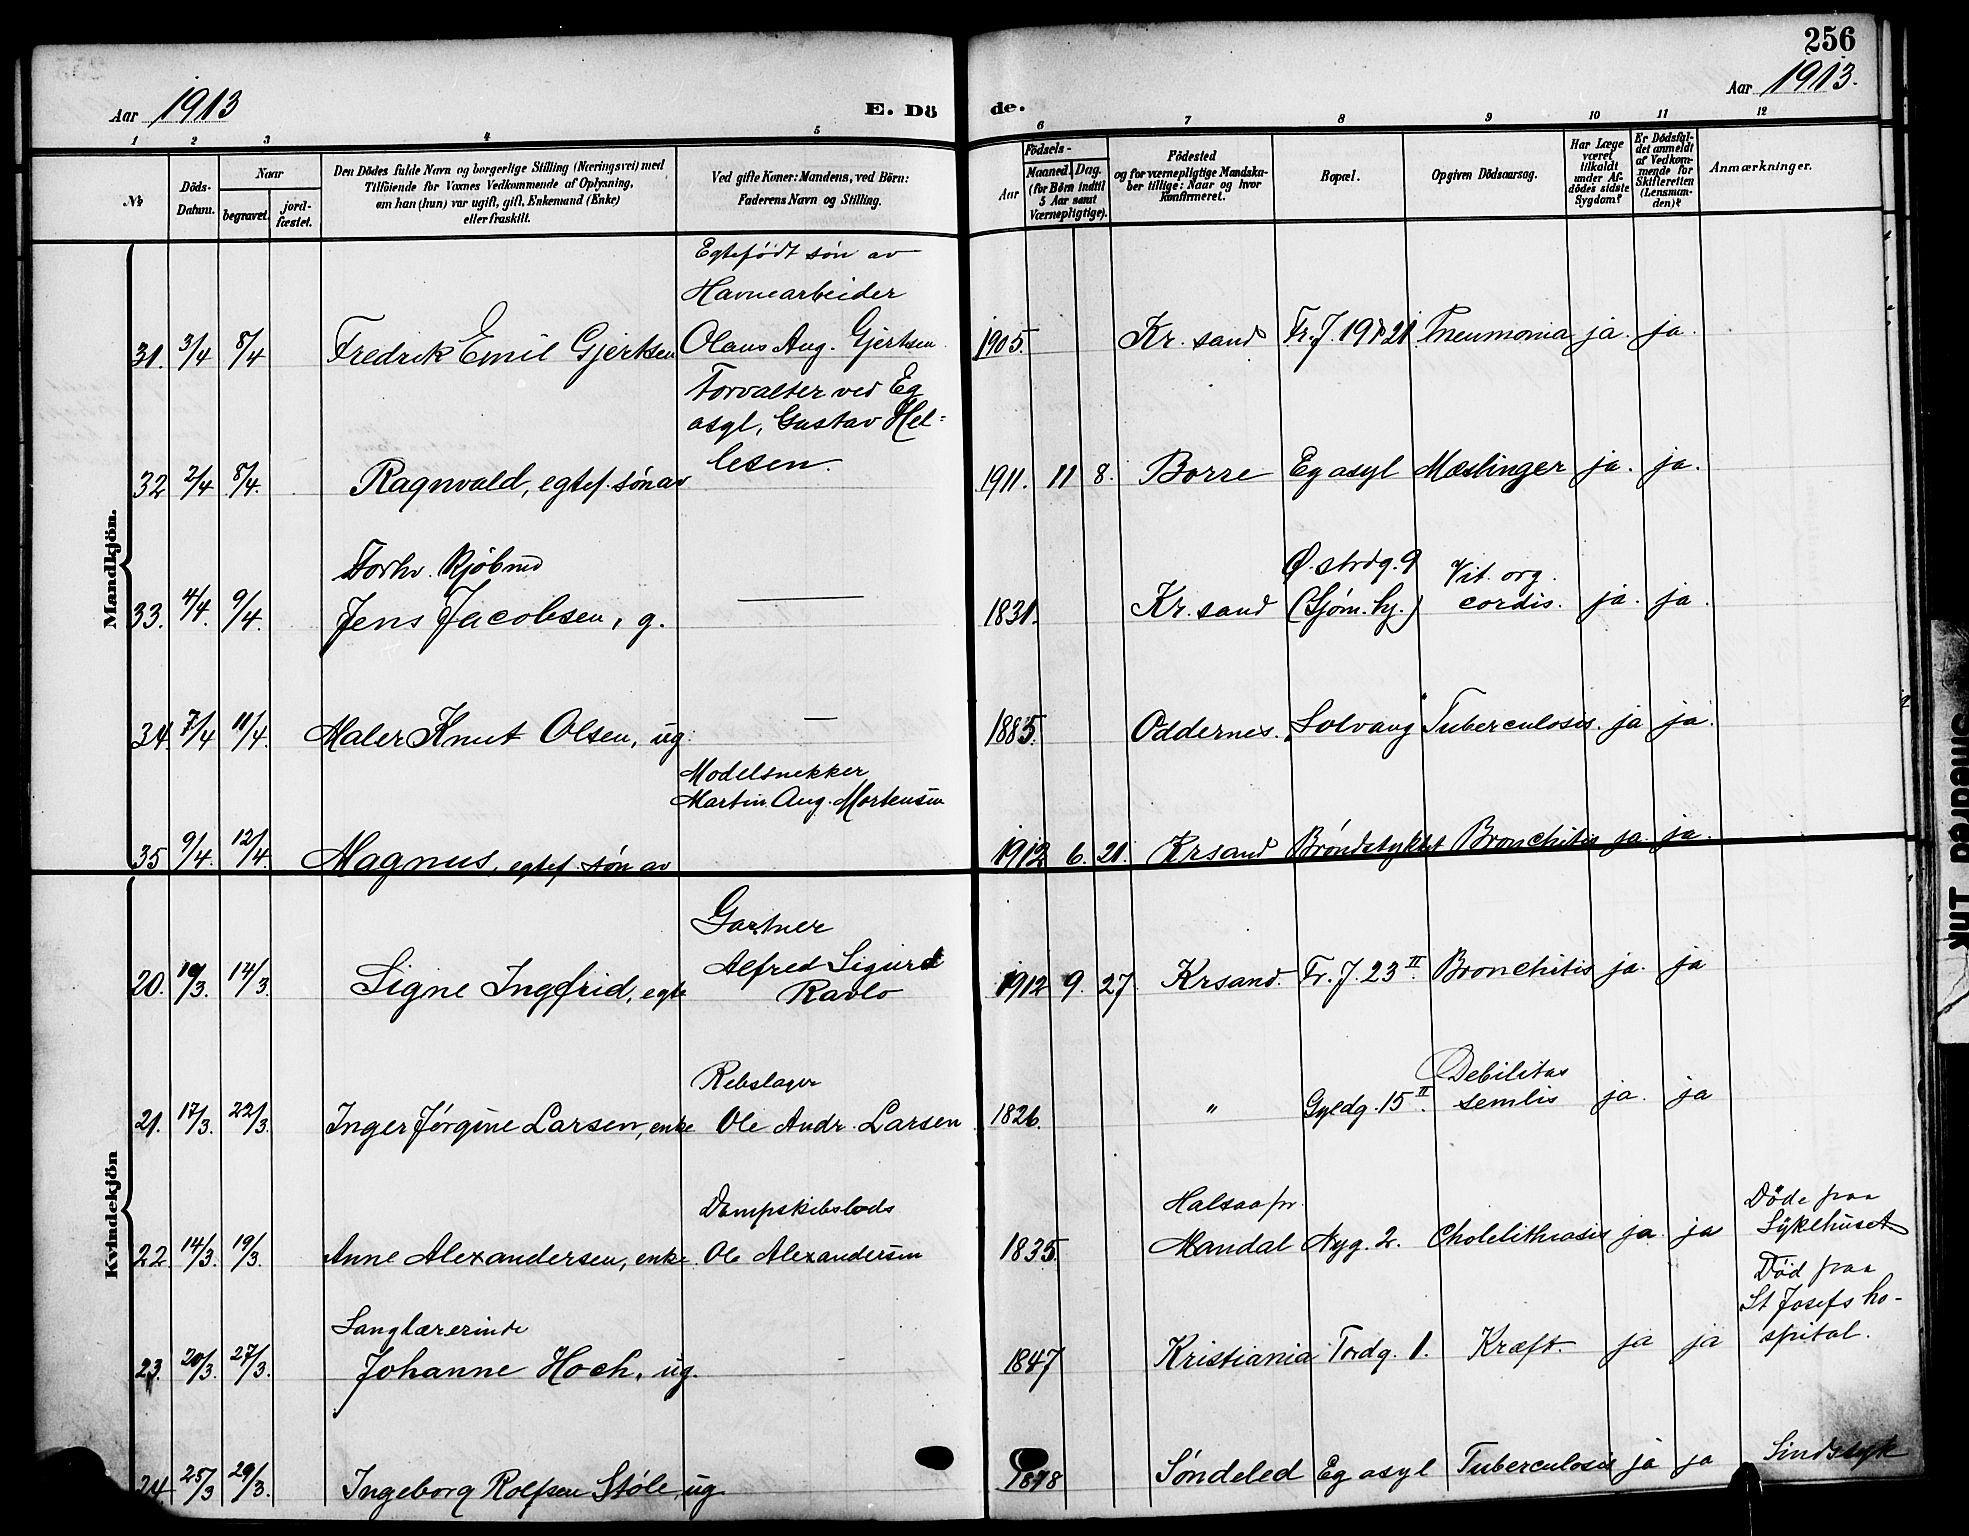 256
Aar 1913
E. Dö
de.
Aar 1913.
1 2 3 4 5 6 7 8 9 10 11 12
№
Döds-
Datum.
Naar
begravet.
jord-
fæstet.
Den Dödes fulde Navn og borgerlige Stilling (Næringsvei) med
Tilföiende for Voxnes Vedkommende af Oplysning,
om han (hun) var ugift, gift, Enkemand (Enke)
eller fraskilt.
Ved gifte Koner: Mandens, ved Börn:
Faderens Navn og Stilling.
Födsels-
Aar
Maaned.
Dag.
(for Börn indtil
5 Aar samt
Værnepligtige).
Födested
og for værnepligtige Mandska-
ber tillige: Naar og hvor
konfirmeret.
Bopæl.
Opgiven Dödsaarsag.
Har Læge
været
tilkaldt
under Af-
dödes sidste
Sygdom?
Er Dödsfal-
det anmeldt
af Vedkom-
mende for
Skifteretten
(Lensman-
den)?
Anmærkninger.
Mandkjön.
Egtefödt sön av
Havnearbeider
31. 3/4 8/4 Fredrik Emil Gjertsen Olaus Aug. Gjertsen 1905. Kr. sand Fr. J. 19 & 21 Pneumonia ja. ja.
Forvalter ved Eg
asyl, Gustav Hel-
lesen.
32 2/4 8/4. Ragnvald, egtef. sön av 1911. 11 8. Borre Eg asyl Mæslinger ja. ja.
Forhv. Kjöbmd Ø. strdg. 9 Vit. org.
33. 4/4. 9/4. Jens Jacobsen, g. — 1831. Kr. sand (Sjöm. hj.) cordis. ja. ja.
34 7/4 11/4. Maler Knut Olsen, ug. — 1885. Oddernes. Solvang Tuberculosis. ja ja.
Modelsnekker
Martin Aug. Mortensen
35 9/4. 12/4. Magnus, egtef. sön av 1912 6. 21. Krsand Bröndstykket Bronchitis ja. ja.
Kvindekjön
Gartner
Alfred Sigurd
20. 10/3. 14/3. Signe Ingfrid, egte Ravlo 1912 9. 27 Krsand. Fr. J. 23 II. Bronchitis ja. ja
Rebslager Debilitas
21. 17/3. 22/3. Inger Jörgine Larsen, enke Ole Andr. Larsen 1826. " Gyldg. 15 II. senilis ja. ja
Dampskibslods Halsaa pr. Döde paa
Sykehuset
22. 14/3. 19/3. Anne Alexandersen, enke Ole Alexandersen 1835. Mandal Nyg. 2. Cholelithiasis ja. ja
Död paa
St Josefs ho-
spital.
Sanglærerinde
23. 20/3. 27/3. Johanne Hoch, ug. - 1847 Kristiania Tordg. 1. Kræft. ja ja
24 25/3 29/3. Ingeborg Rolfsen Støle, ug 1878 Søndeled Eg asyl Tuberculosis ja ja Sindssyk